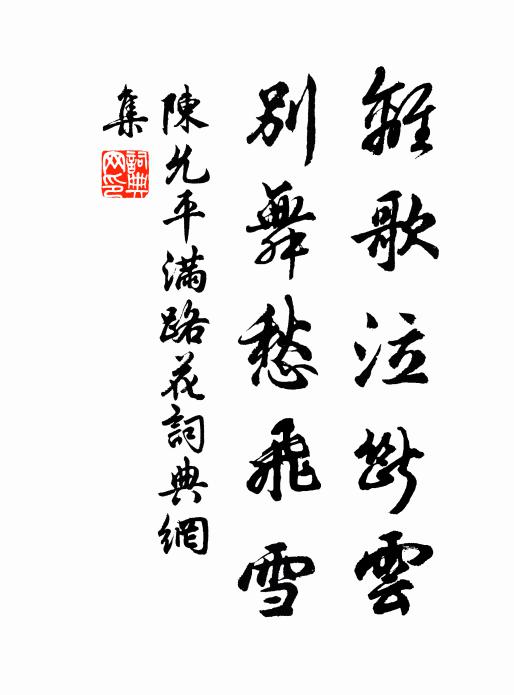 離歌泣斷雲
別舞愁飛雪
陳允平滿路花詞典網
集
詞典
网印